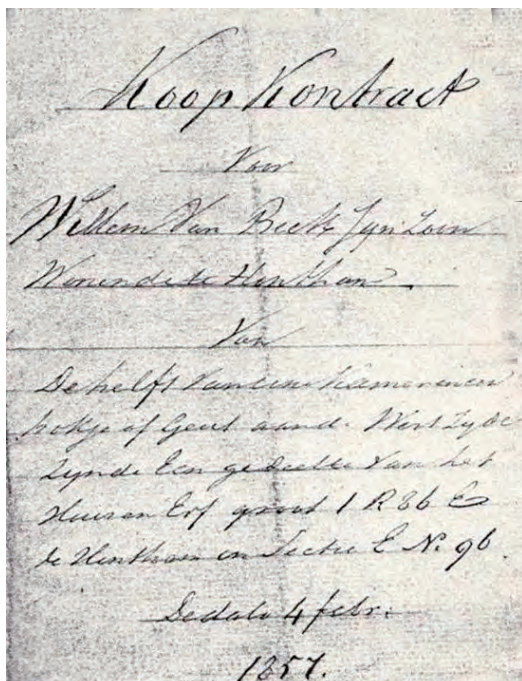 Koop Kontract
Voor
Willem Van Beek Zyn Zoon
Wonende te Hintham
Van
De helft van eene Kamer en een
hokje of Geut aan de West Zyde
Zynde Een gedeelte Van het
Huis en Erf groot 1 R 86 E
te Hintham in Sectie E No. 96
De dato 4 febr.
1857.